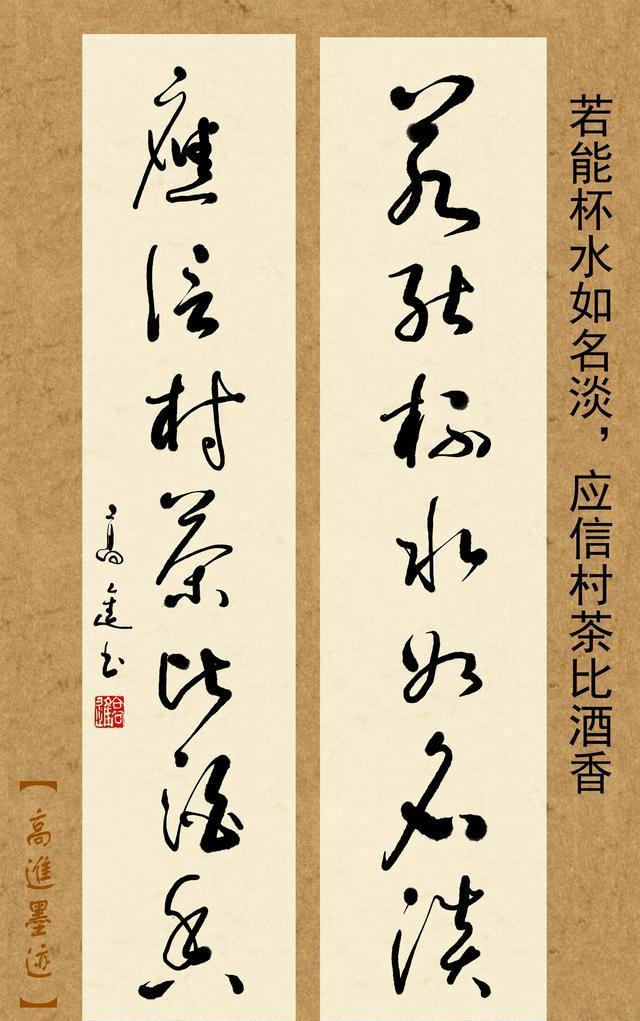 若能杯水如名淡，应信村茶比酒香
若能杯水如名淡
應信村茶比酒香
高進书
高進
【高進墨迹】